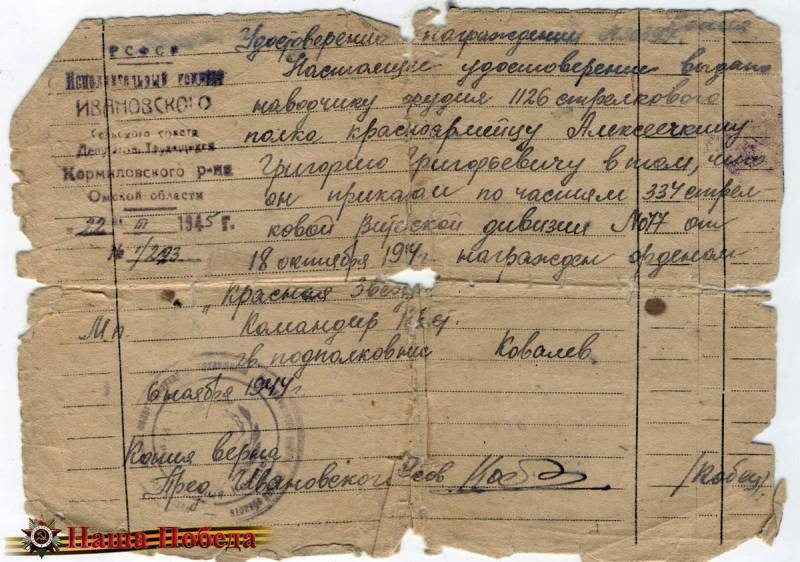 РСФСР
Исполнительный комитет
ИВАНОВСКОГО
Сельского совета
Депутатов Трудящихся
Кормиловского р-на
Омской области
"22" III 1945 г.
№
Копия
Удостоверение награждении
Настоящие удостоверение выдано
наводчику орудия 1126 стрелкового
полка красноармейцу Алексеечкину
Григорию Григорьевичу в том, что
он приказом по частям 334 стрел
ковой Витебской дивизии №077 от
18 октября 194 г. награжден орденом
"Красная Звезд
М.п. Командир
гв. подполковник Ковалев
6 ноября 1944 г
Копия верна
Пред Ивановского Сов
/Кобец/
Наша Победа